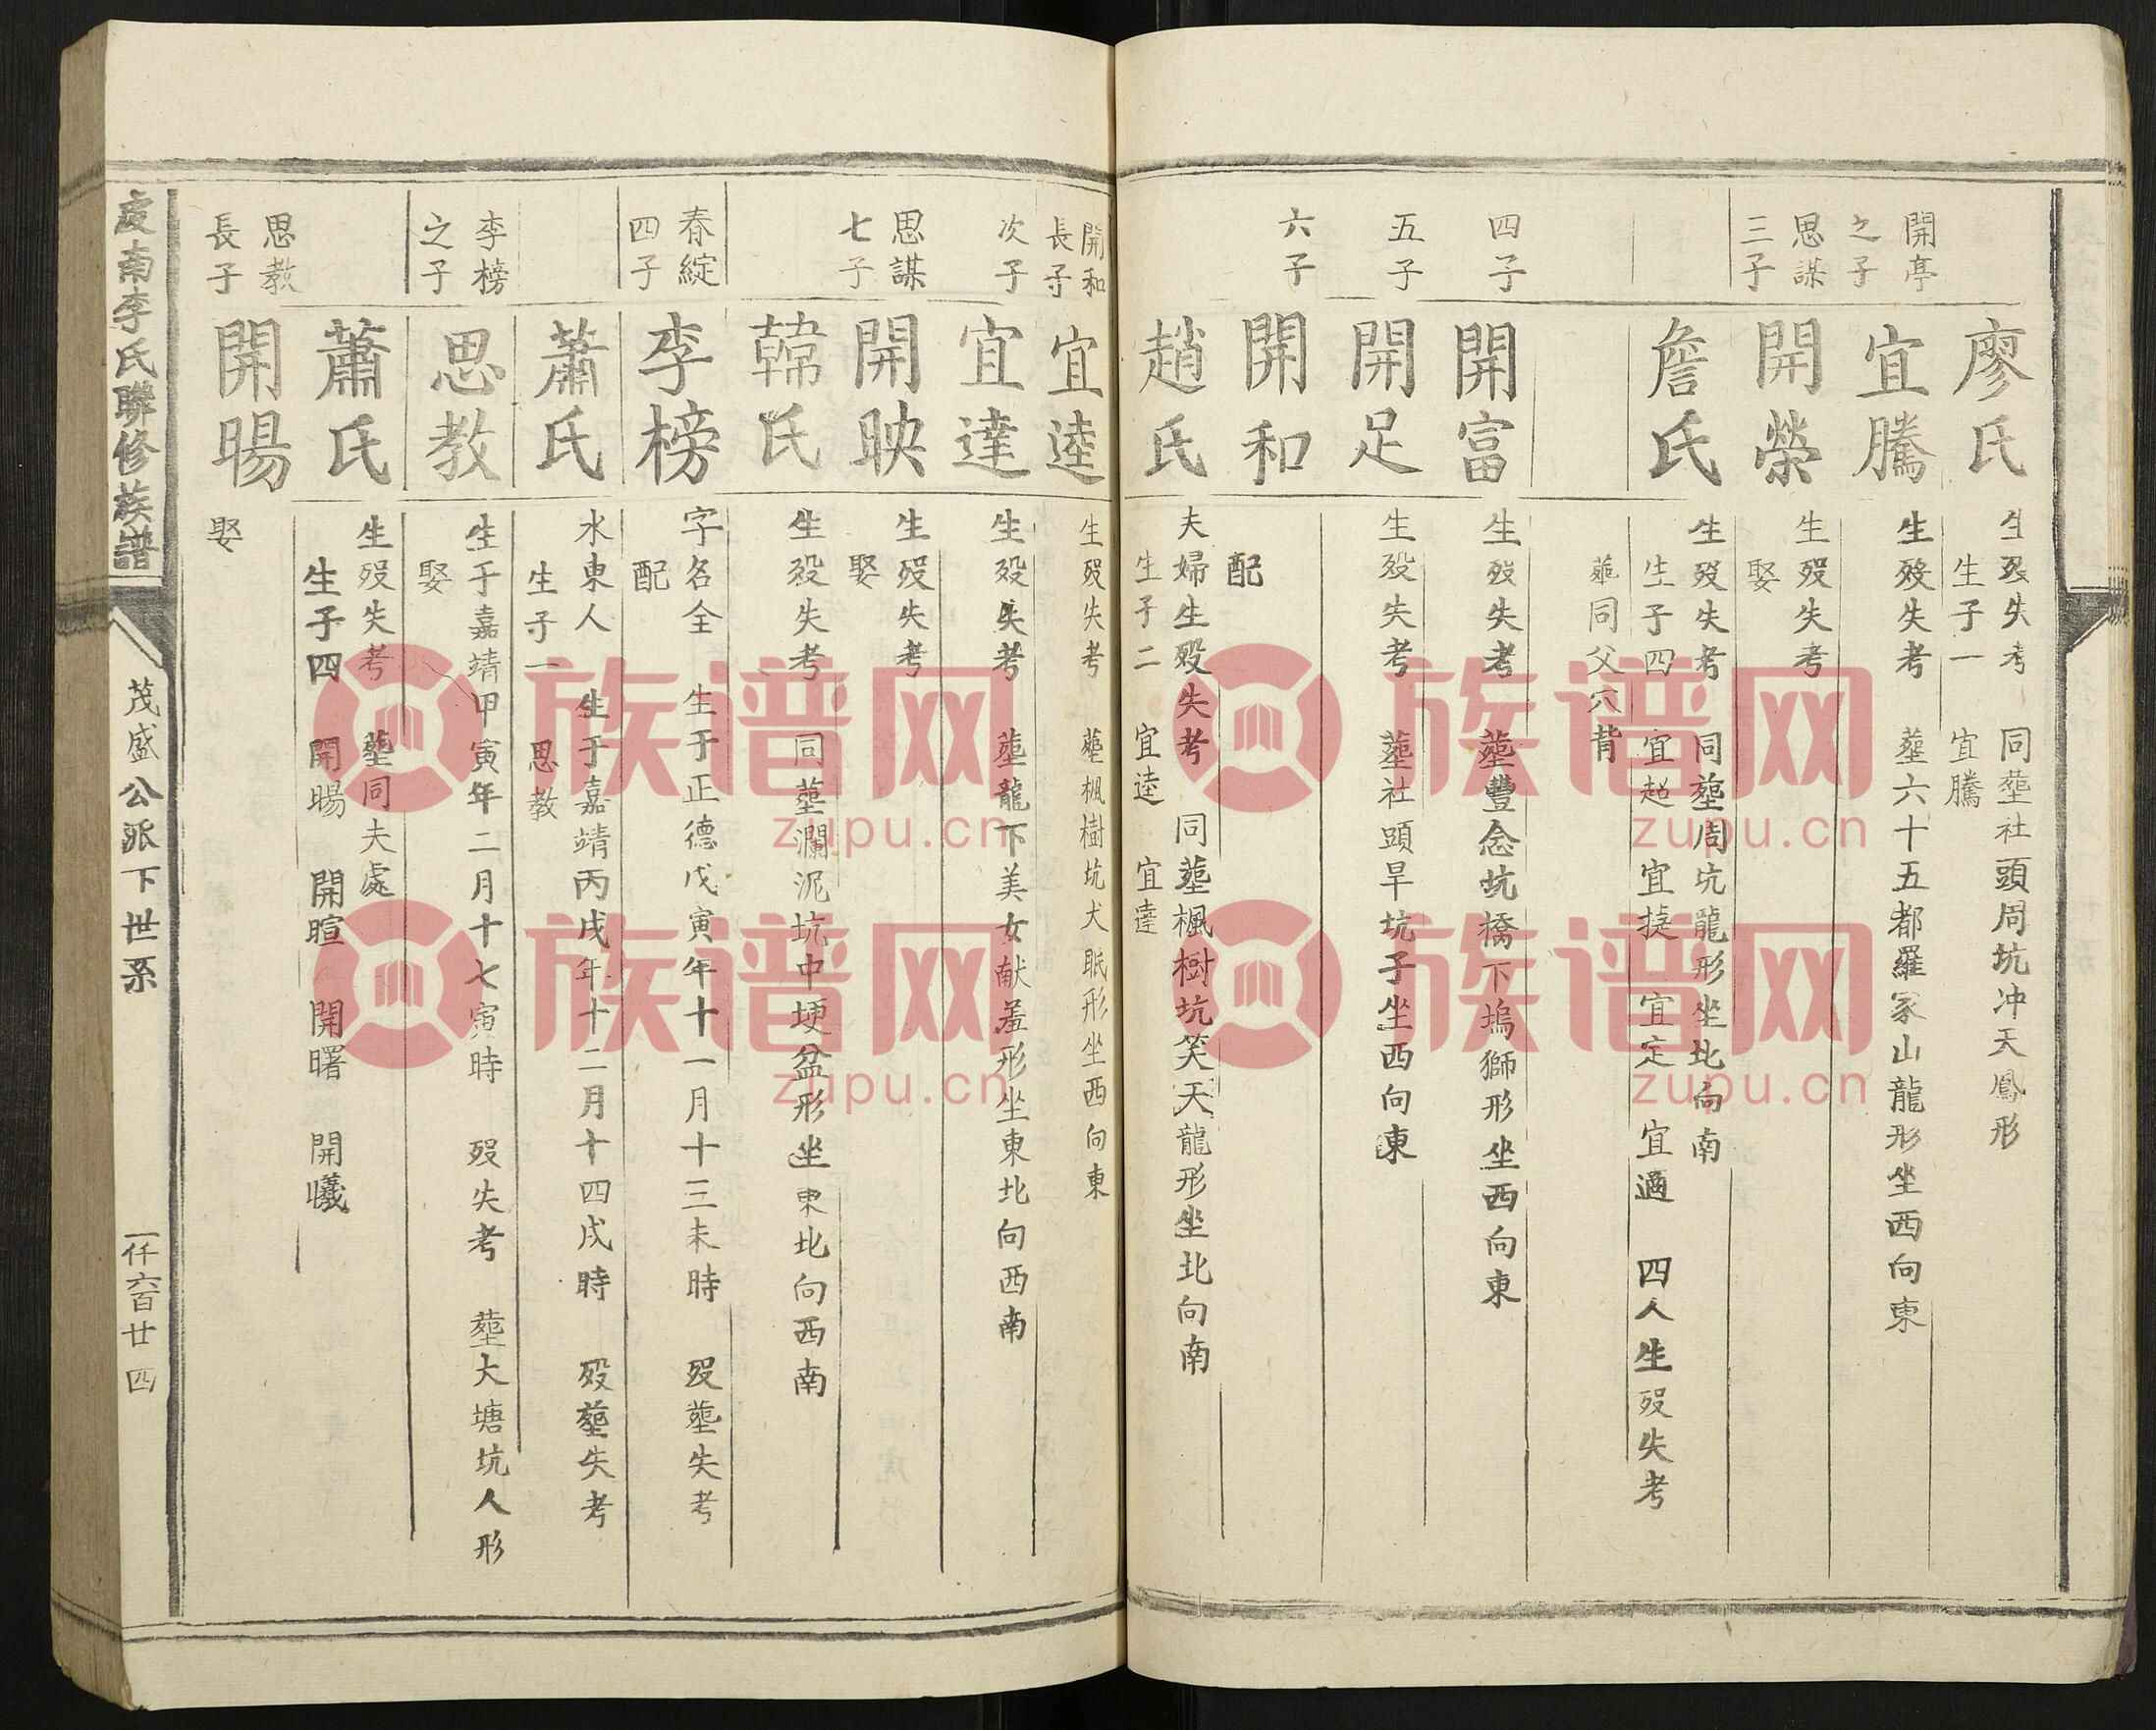 廖氏
生殁失考 同塟社頭周坑冲天鳳形
生子一 宜騰
開亭之子
宜騰
生殁失考 塟六十五都羅家山龍形坐西向東
思謀三子
開榮
生殁失考
娶
詹氏
生殁失考 同塟周坑龍形坐北向南
生子四 宜超 宜 宜定 宜適 四人生殁失考
塟同父穴背
四子
開富
生殁失考 塟豐念坑橋下塢獅形坐西向東
五子
開足
生殁失考 塟社頭旱坑子坐西向東
六子
開和
配
趙氏
夫婦生殁失考 同塟楓樹坑笑天龍形坐北向南
生子二 宜逵 宜達
開和長子
宜逵
生殁失考 塟楓樹坑犬眠形坐西向東
次子
宜達
生殁失考 塟龍下美女献羞形坐東北向西南
思謀七子
開映
生殁失考
娶
韓氏
生殁失考 同塟瀾泥坑中埂盆形坐東北向西南
春綻四子
李榜
字名全 生于正德戊寅年十一月十三未時 殁塟失考
配
蕭氏
水東人 生于嘉靖丙戌年十二月十四戌時 殁塟失考
生子一 思教
李榜之子
思教
生于嘉靖甲寅年二月十七寅時 殁失考 塟大塘坑人形
娶
蕭氏
生殁失考 塟同夫處
生子四 開暘 開暄 開曙 開曦
思教長子
開暘
娶
虔南李氏聯修族譜
茂盛公派下世系
一仟六百廿四
族谱网
zupu.cn
族谱网
zupu.cn
族谱网
zupu.cn
族谱网
zupu.cn